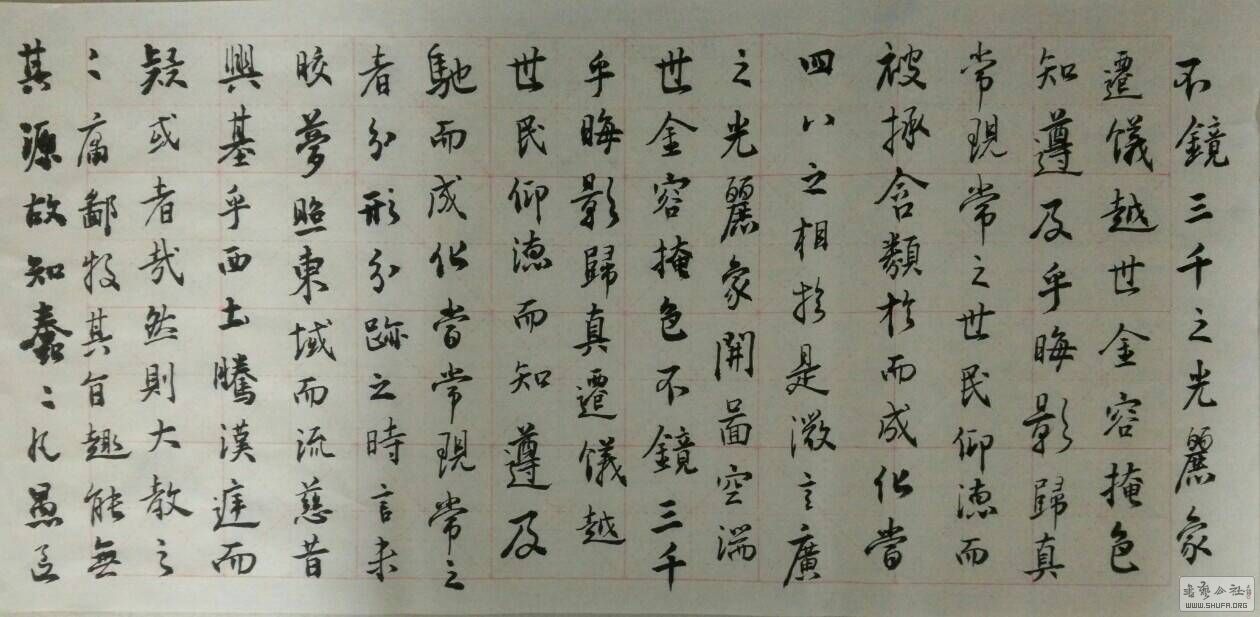 不鏡三千之光麗象
遷儀越世金容掩色
知遵及乎晦影歸真
常現常之世民仰德而
被拯含類於而成化當
四八之相於是微言廣
之光麗象開啚空端
世金容掩色不鏡三千
乎晦影歸真遷儀越
世民仰德而知遵及
馳而成化當常現常之
者分形分跡之時言未
晈夢照東域而流慈昔
興基乎西土騰漢庭而
疑或者哉然則大教之
〻庸鄙投其旨趣能無
其源故知蠢〻凡愚區
書藝公社
WWW.SHUFA.ORG